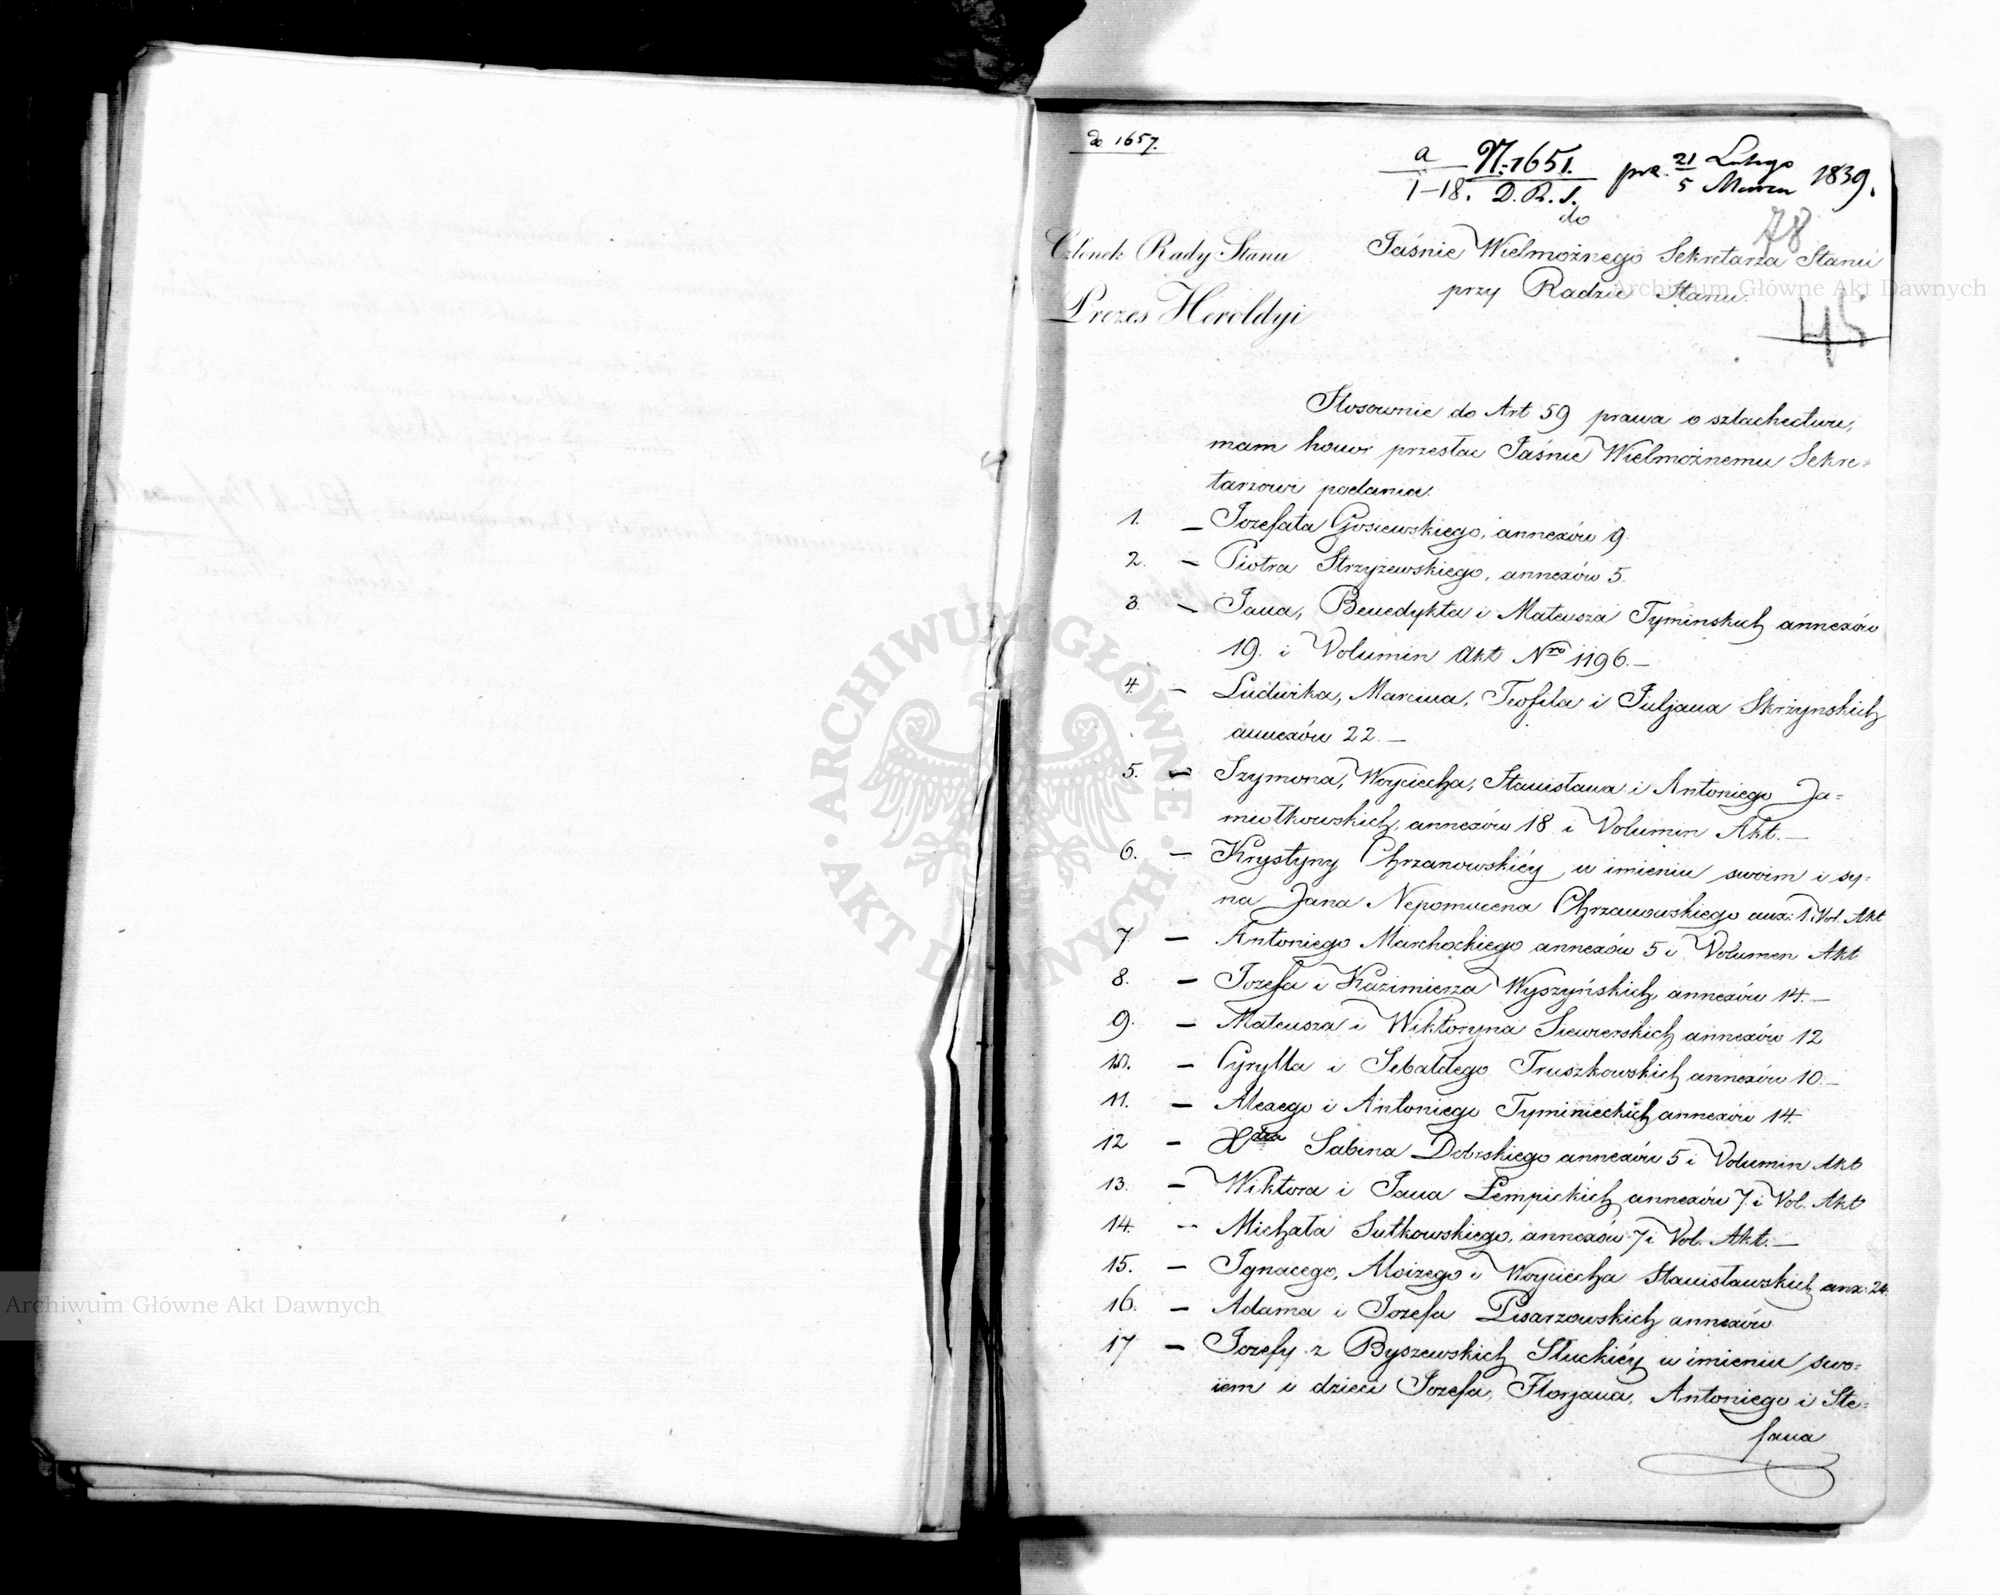 do 1657.
a N: 1651. prz. 21 Lutego 1839.
1–18. D. R. S. 5 Marca
do
78
Członek Rady Stanu
Jaśnie Wielmożnego Sekretarza Stanu
przy Radzie Stanu.
Prezes Heroldyi
45
Stosownie do Art 59 prawa o szlachectwie,
mam honor przesłać Jaśnie Wielmożnemu Sekre=
tarzowi podania.
1. – Jozefata Gosiewskiego, annexów 9.
2. – Piotra Strzyżewskiego, annexów 5.
3. – Jana, Benedykta i Mateusza Tyminskich annexów
19. i Volumin Akt Nro 1196.–
4. – Ludwika, Marcina, Teofila i Juljana Skrzynskich
annexów 22.–
5. – Szymona, Woyciecha, Stanisława i Antoniego Ja=
miołkowskich, annexów 18 i Volumin Akt.–
6. – Krystyny Chrzanowskiéy w imieniu swoim i sy=
na Jana Nepomucena Chrzanowskiego anx: 1. i Vol. Akt
7 – Antoniego Marchockiego annexów 5 i Volumen Akt
8. – Jozefa i Kazimierza Wyszyńskich, annexów 14.–
9. – Mateusza i Wiktoryna Siewierskich annexów 12
10. – Cyrylla i Sebaldego Truszkowskich annexów 10.–
11. – Alexego i Antoniego Tyminieckich annexów 14.
12 – Xdza Sabina Dobrskiego annexów 5 i Volumin Akt
13. – Wiktora i Jana Łempickich annexów 7. i Vol. Akt
14. – Michała Sutkowskiego, annexów 7 i Vol. Akt.–
15. – Ignacego, Aloizego i Woyciecha Stanisławskich anx: 24.
16. – Adama i Jozefa Pisarzowskich annexów
17 – Jozefy z Byszewskich Słuckiéy w imieniu swo=
iem i dzieci Jozefa, Florjana, Antoniego i Ste=
fana
ARCHIWUM GŁÓWNE · AKT DAWNYCH ·
Archiwum Główne Akt Dawnych
Archiwum Główne Akt Dawnych